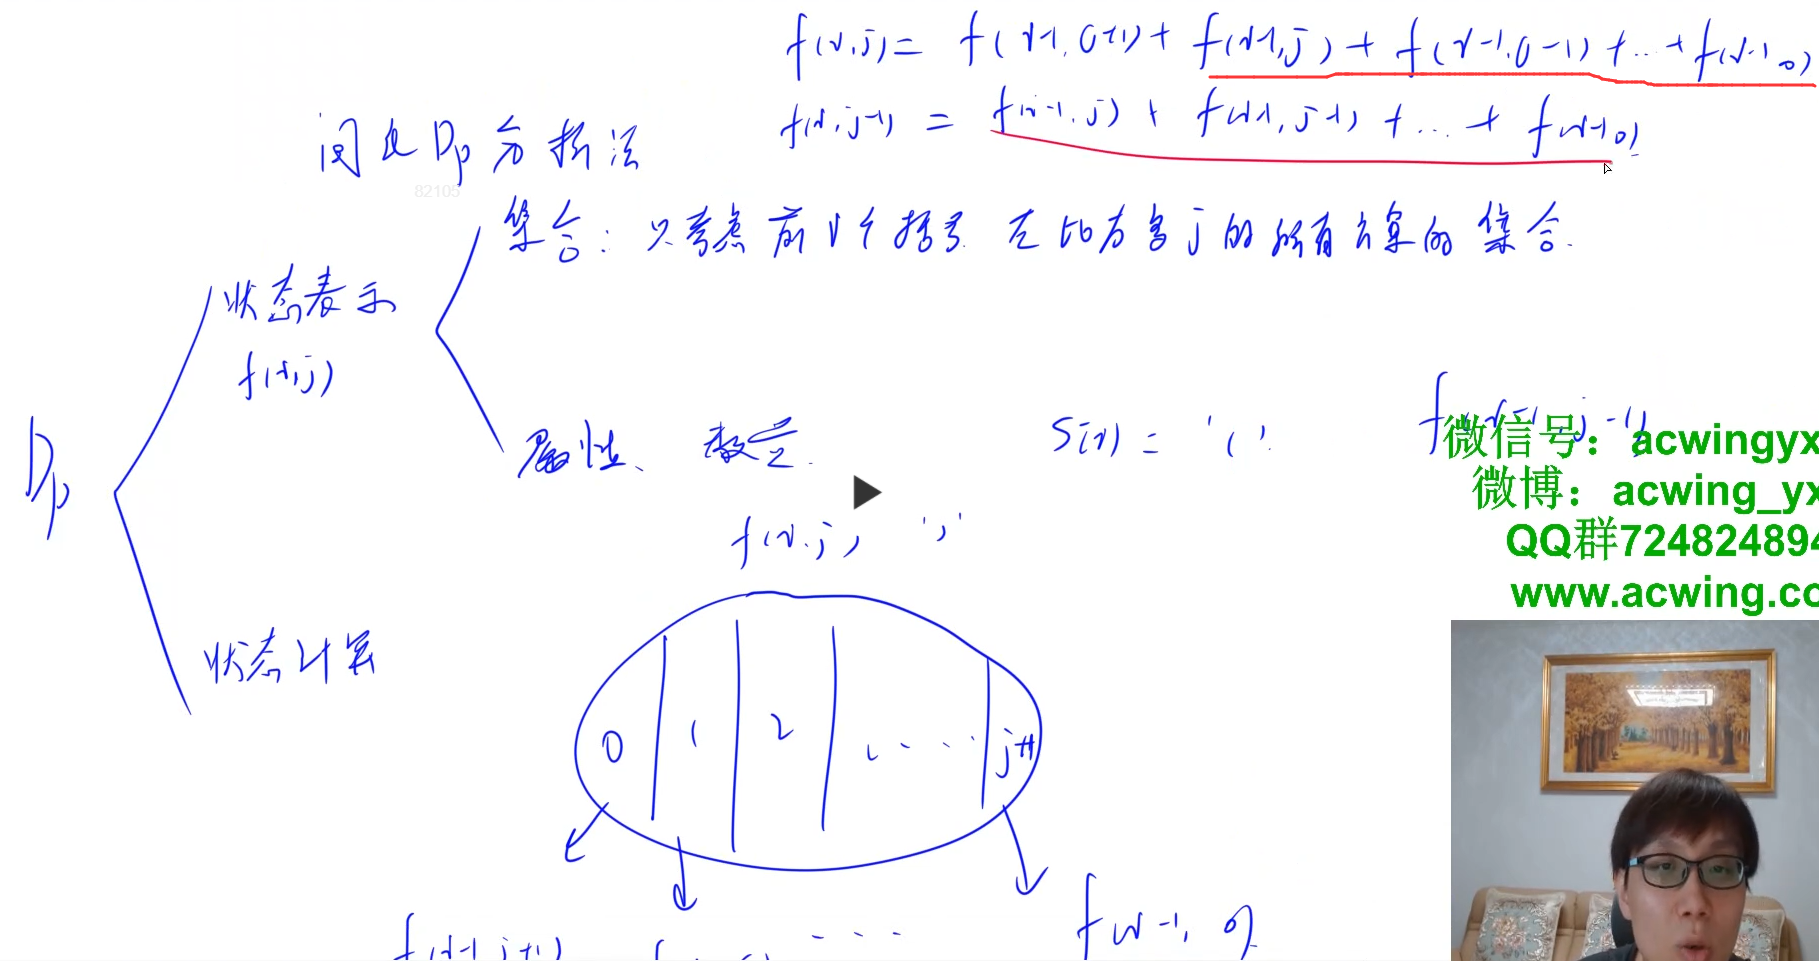 f(i,j) = f(i-1,j+1) + f(i-1,j) + f(i-1,j-1) + ... + f(i-1,0)
f(i,j-1) = f(i-1,j) + f(i-1,j-1) + ... + f(i-1,0)
闫氏Dp分析法
82105
集合:只考虑前i个括号 左比右多j的所有方案的集合.
状态表示
f(i,j)
Dp
属性、数量.
S[i] = '('.
f(i-1,j-1)
微信号：acwingyx
微博：acwing_yx
QQ群724824894
www.acwing.co
f(i,j) ')'
状态计算
0 1 2 .... j+1
f(i-1,j+1) ... f(i-1,0)